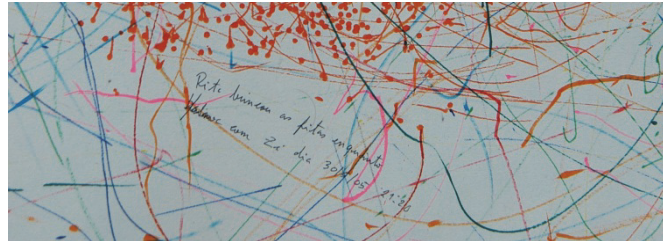 Rita brincou as fitas enquanto
falava com Zé dia 30/5/05 21:20